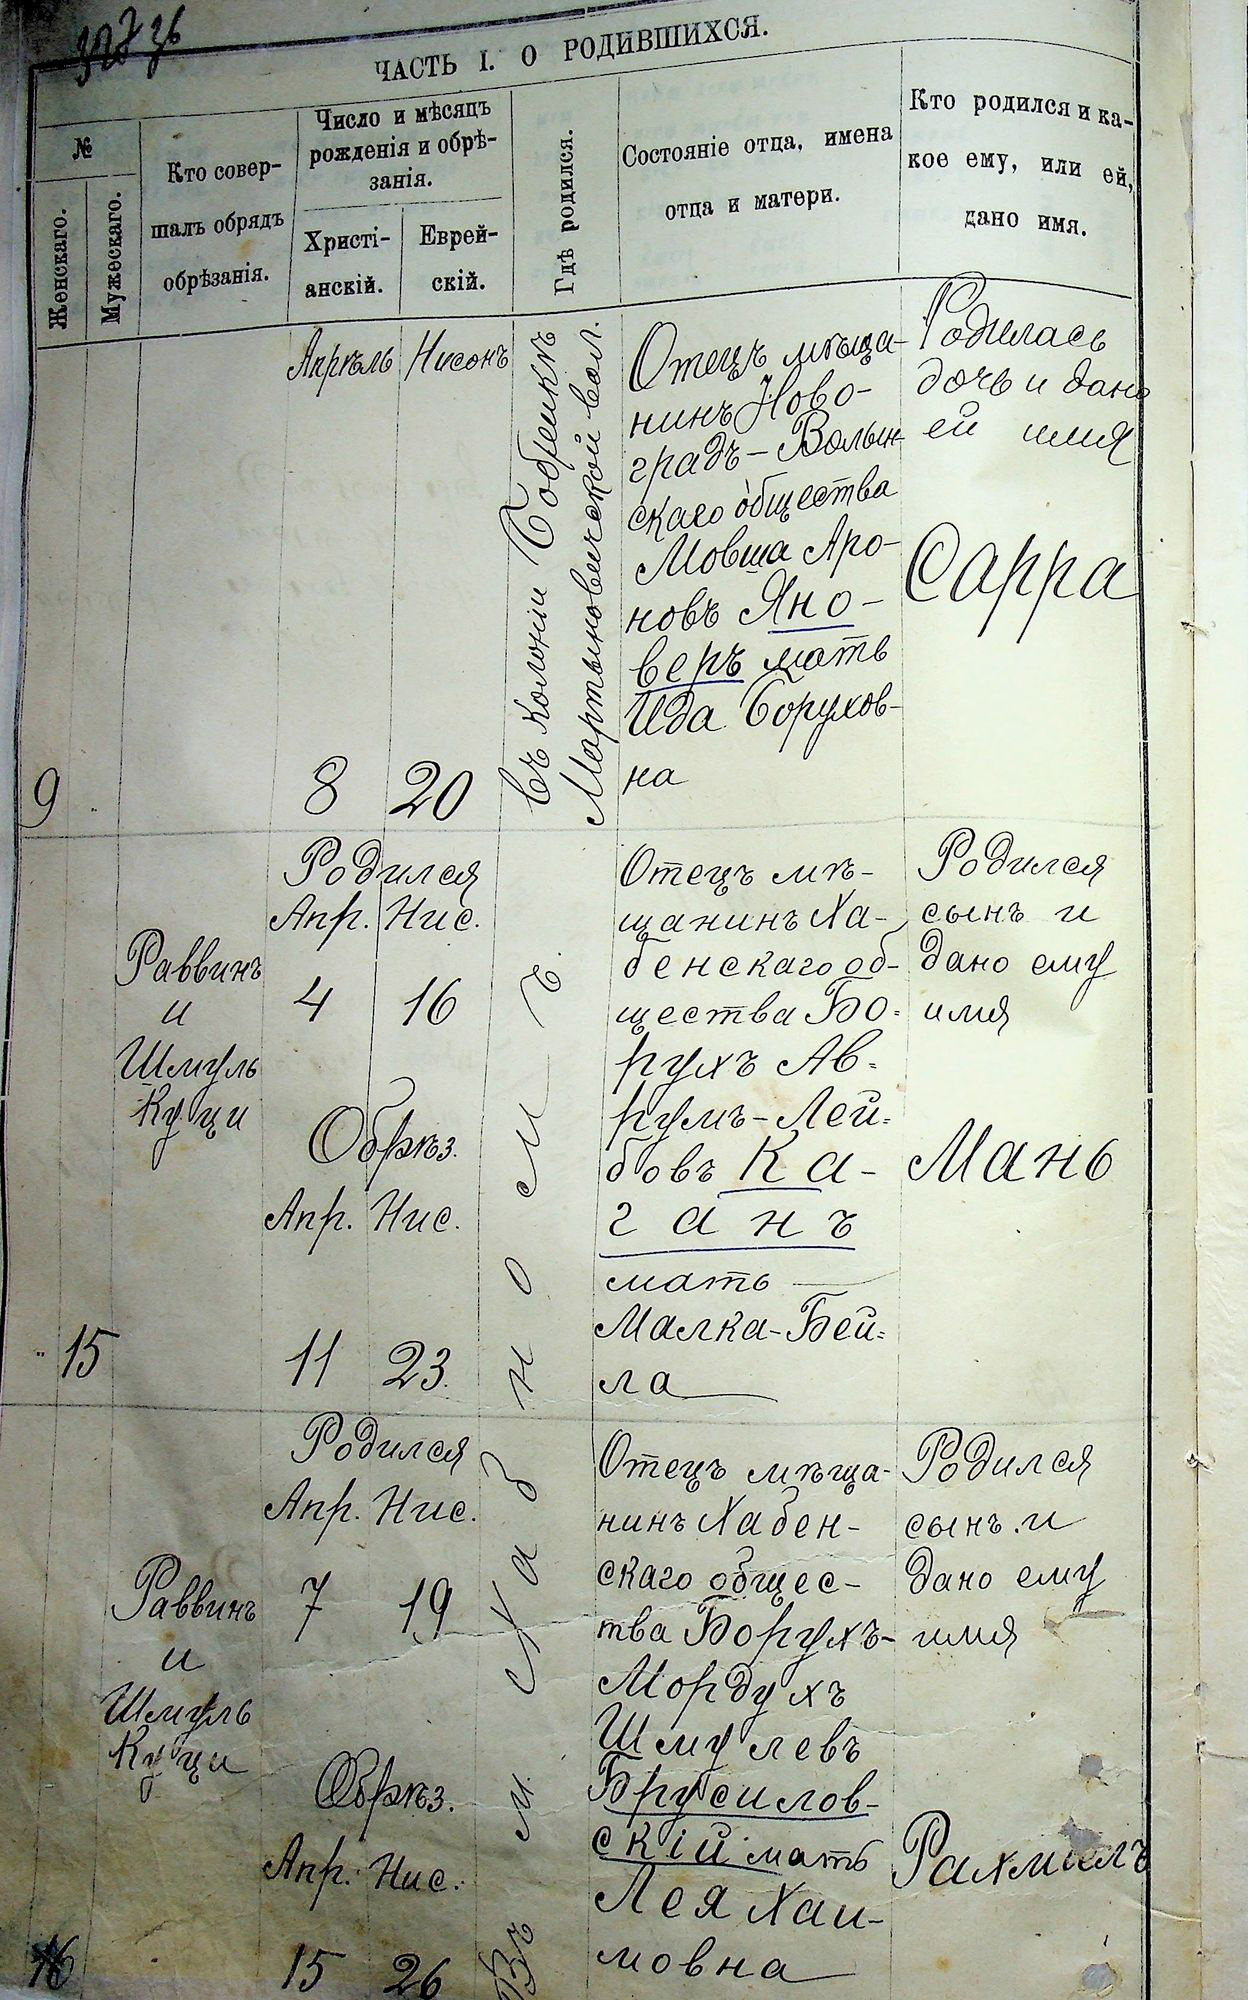 36
ЧАСТЬ I. О РОДИВШИХСЯ.
№
Женскаго.
Мужескаго.
Кто совер-
шалъ обрядъ
обрѣзанія.
Число и мѣсяцъ
рожденія и обрѣ-
занія.
Христі-
анскій.
Еврей-
скій.
Гдѣ родился.
Состояніе отца, имена
отца и матери.
Кто родился и ка-
кое ему, или ей,
дано имя.
9
Апрѣль
8
Нисонъ
20
въ колоніи
Мартыновичской вол.
Отецъ мѣща-
нинъ Ново-
градъ-Волын-
скаго общества
Мовша Аро-
новъ Яно-
веръ мать
Ида Борухов-
на
Родилась
дочь и дано
ей имя
Сарра
15
Раввинъ
и
Шмуль
Куци
Родился
Апр. Нис.
4 16
Обрѣз.
Апр. Нис.
11 23.
Отецъ мѣ-
щанинъ Ха-
бенскаго об-
щества Бо-
рухъ Ав-
румъ-Лей-
бовъ Ка-
ганъ
мать
Малка-Бей-
ла
Родился
сынъ и
дано ему
имя
Мань
16
Раввинъ
и
Шмуль
Куци
Родился
Апр. Нис.
7 19
Обрѣз.
Апр. Нис.
15 26
Въ м. Хабномъ.
Отецъ мѣща-
нинъ Хабен-
скаго общес-
тва Борухъ-
Мордухъ
Шмулевъ
Брусилов-
скій мать
Лея Хаи-
мовна
Родился
сынъ и
дано ему
имя
Рахмиелъ